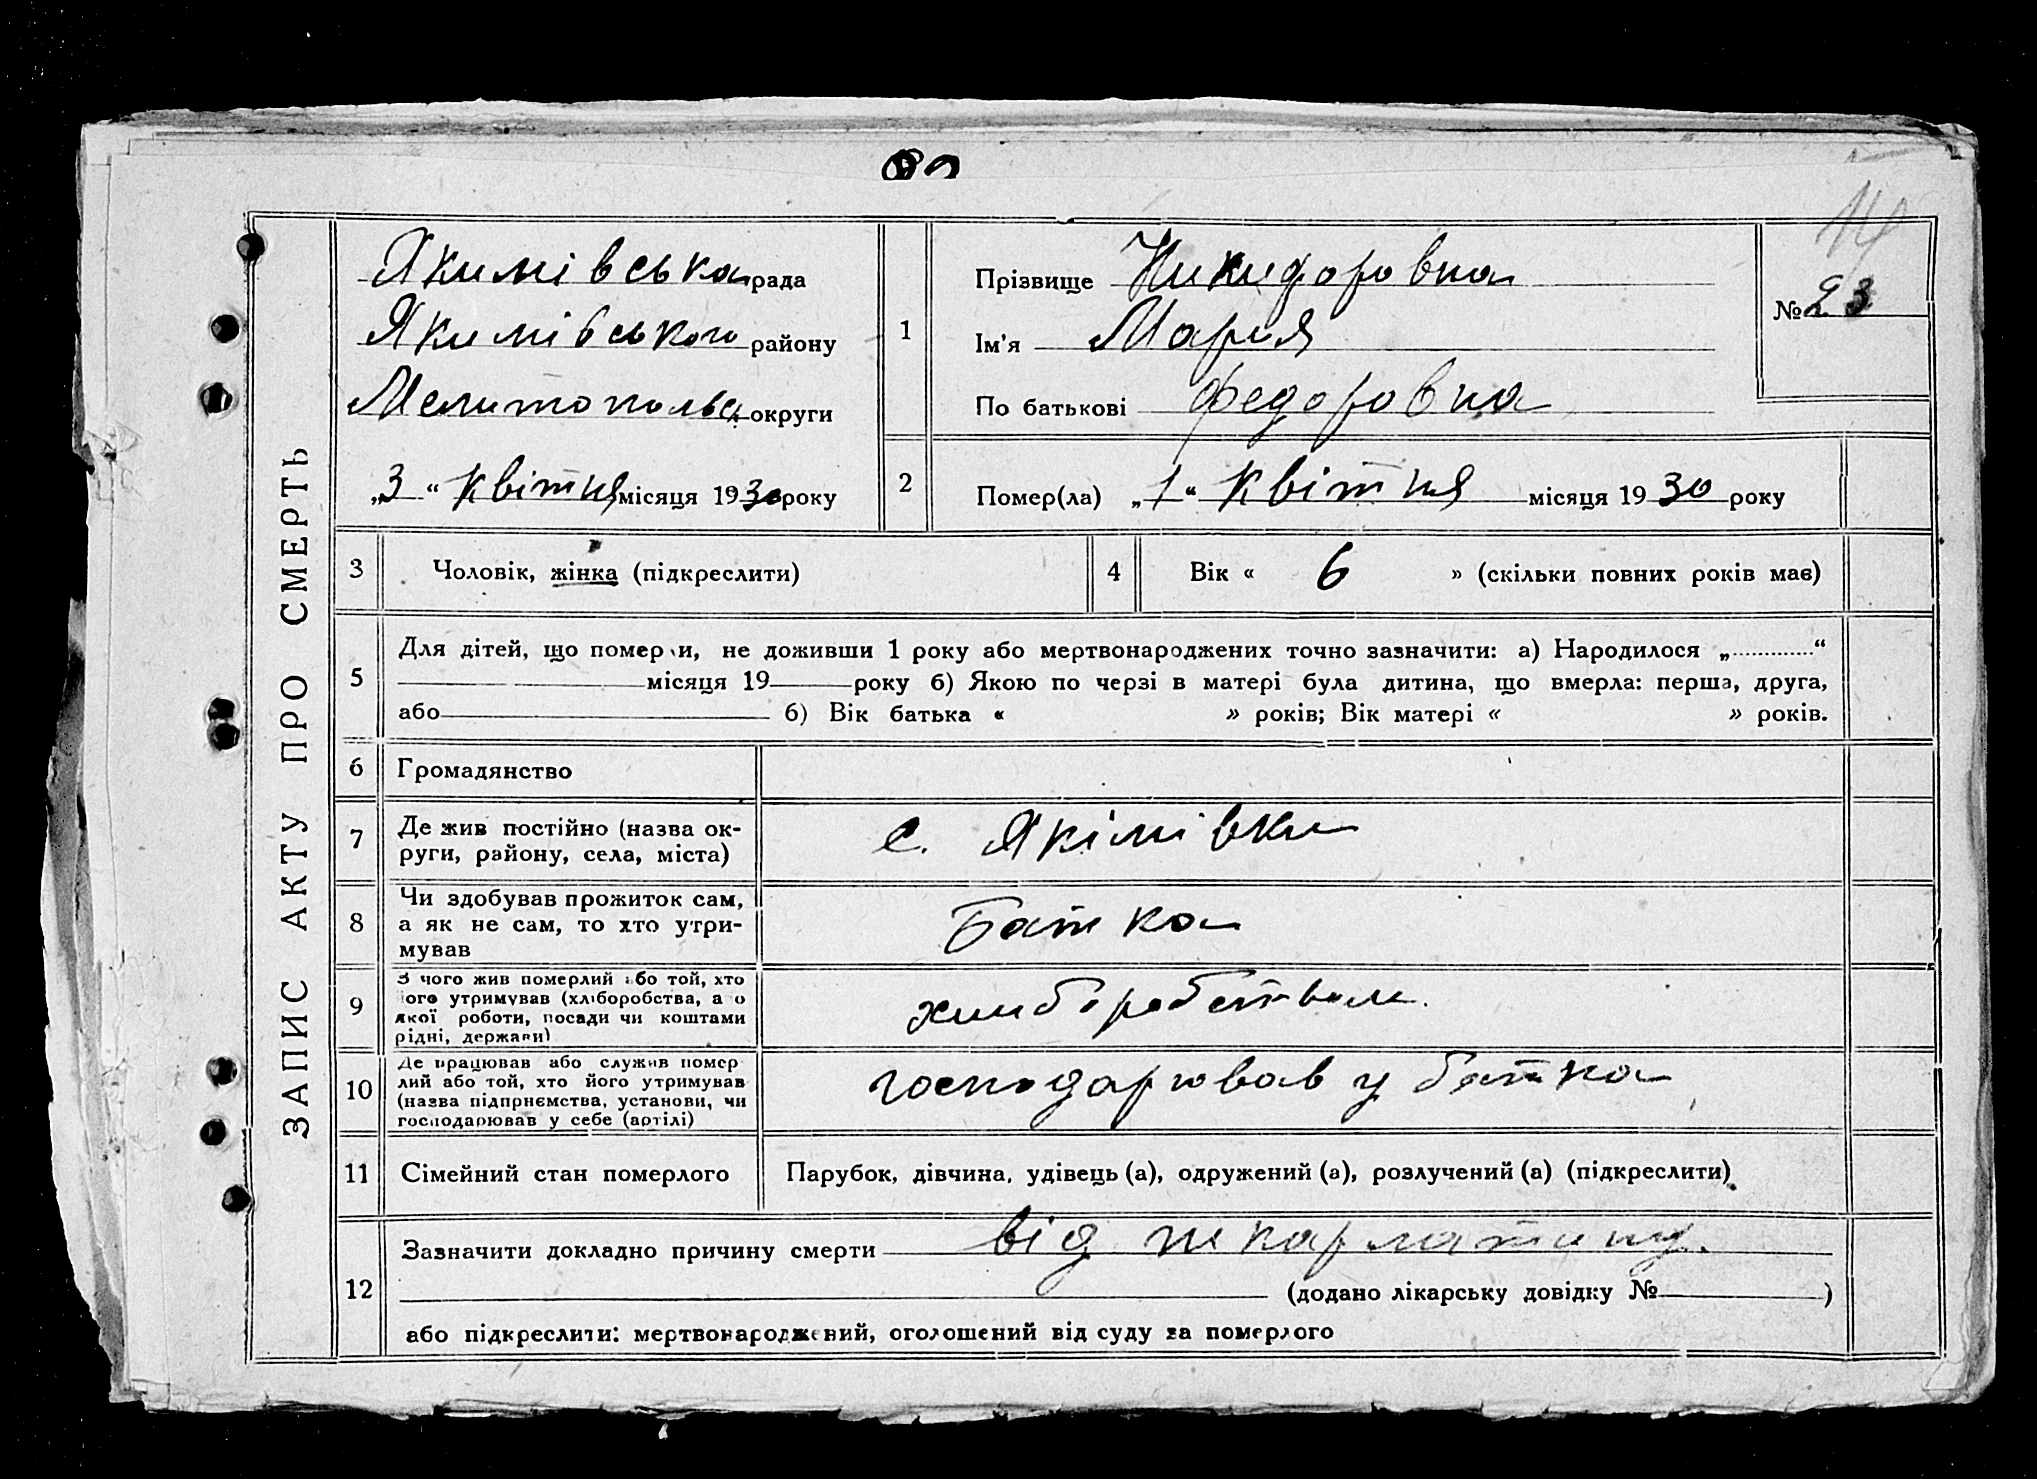 ЗАПИС АКТУ ПРО СМЕРТЬ
Якимівська рада
Якимівського району
Мелитопольс. округи
„3“ квітня місяця 1930 року
1
Прізвище Никифоровна
Ім'я Мария
По батькові Федоровна
№ 23
2
Помер(ла) „1“ квітня місяця 1930 року
3 Чоловік, жінка (підкреслити)
4 Вік « 6 » (скільки повних років має)
5
Для дітей, що померли, не доживши 1 року або мертвонароджених точно зазначити: а) Народилося „ “
місяця 19 року б) Якою по черзі в матері була дитина, що вмерла: перша, друга,
або б) Вік батька « » років; Вік матері « » років.
6 Громадянство
7 Де жив постійно (назва ок-
руги, району, села, міста)
с. Якімівки
8 Чи здобував прожиток сам,
а як не сам, то хто утри-
мував
Батка
9 З чого жив померлий або той, хто
його утримував (хліборобства, а о
якої роботи, посади чи коштами
рідні, держави)
хлиборобством.
10 Де працював або служив помер
лий або той, хто його утримував
(назва підприємства, установи, чи
господарював у себе (артілі)
господарював у батка
11 Сімейний стан померлого
Парубок, дівчина, удівець (а), одружений (а), розлучений (а) (підкреслити)
12
Зазначити докладно причину смерти від шкарлатину.
(додано лікарську довідку № )
або підкреслити: мертвонароджений, оголошений від суду за померлого